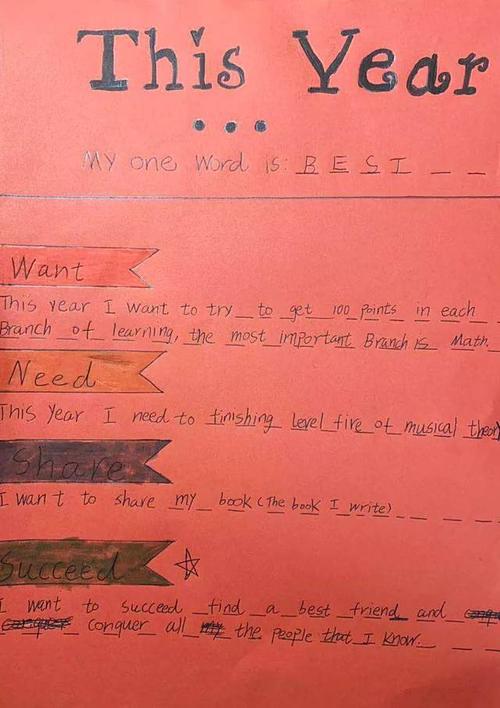 This Year
...
My one word is: BEST _ _
Want
This year I want to try to get 100 points in each
Branch of learning, the most important Branch is Math.
Need
This Year I need to finishing level five of musical theory
Share
I want to share my book (The book I write)
Succeed
I want to succeed find a best friend and
conquer all the people that I know.